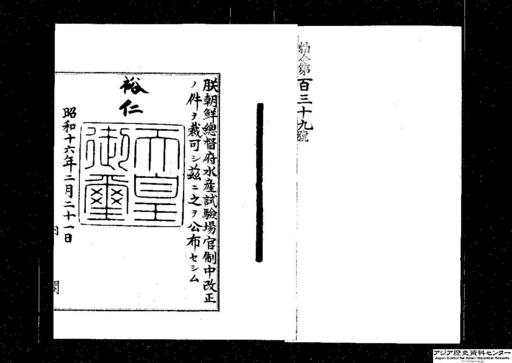 勅令第百三十九號
朕朝鮮總督府水産試驗場官制中改正
ノ件ヲ裁可シ茲ニ之ヲ公布セシム
裕仁
天皇
御璽
昭和十六年二月二十一日
内閣
アジア歴史資料センター
Japan Center for Asian Historical Records